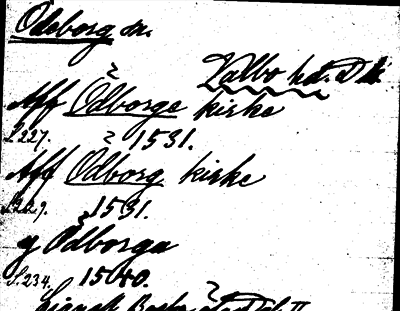 Ödeborg sn.
Valbo hd. Dls
Aff Ödborge kirke
S. 227. 1531.
Aff Ödborg kirke
S. 229. 1531.
y Ödborga
S. 234. 1540.
II